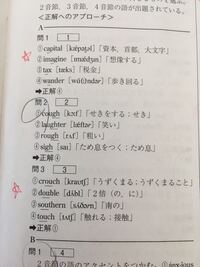 2音節、3音節、4音節の語が出題されている。
<正解へのアプローチ>
A
問1 1
①capital [kǽpətəl]「資本，首都，大文字」
②imagine [imǽdʒin]「想像する」
③tax [tæks]「税金」
④wander [wɑ́(ː)ndər]「歩き回る」
➡正解④
問2 2
①cough [kɔːf]「せきをする；せき」
②laughter [lǽftər]「笑い」
③rough [rʌf]「粗い」
④sigh [sai]「ため息をつく；ため息」
➡正解④
問3 3
①crouch [krautʃ]「うずくまる；うずくまること」
②double [dʌ́bl]「2倍（の，に）」
③southern [sʌ́ðərn]「南の」
④touch [tʌtʃ]「触れる；接触」
➡正解①
B
問1 4
2音節の語のアクセントを